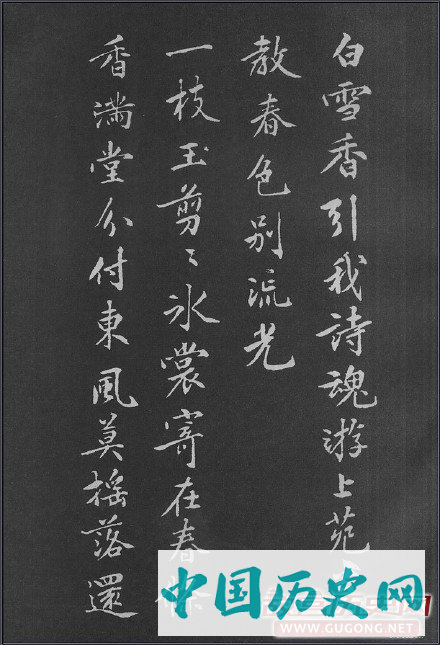 白雪香引我詩魂游上苑
教春色别流光
一枝玉剪々氷裳寄在春
香滿堂分付東風莫摇落還
中国历史网
WWW.GUGONG.NET